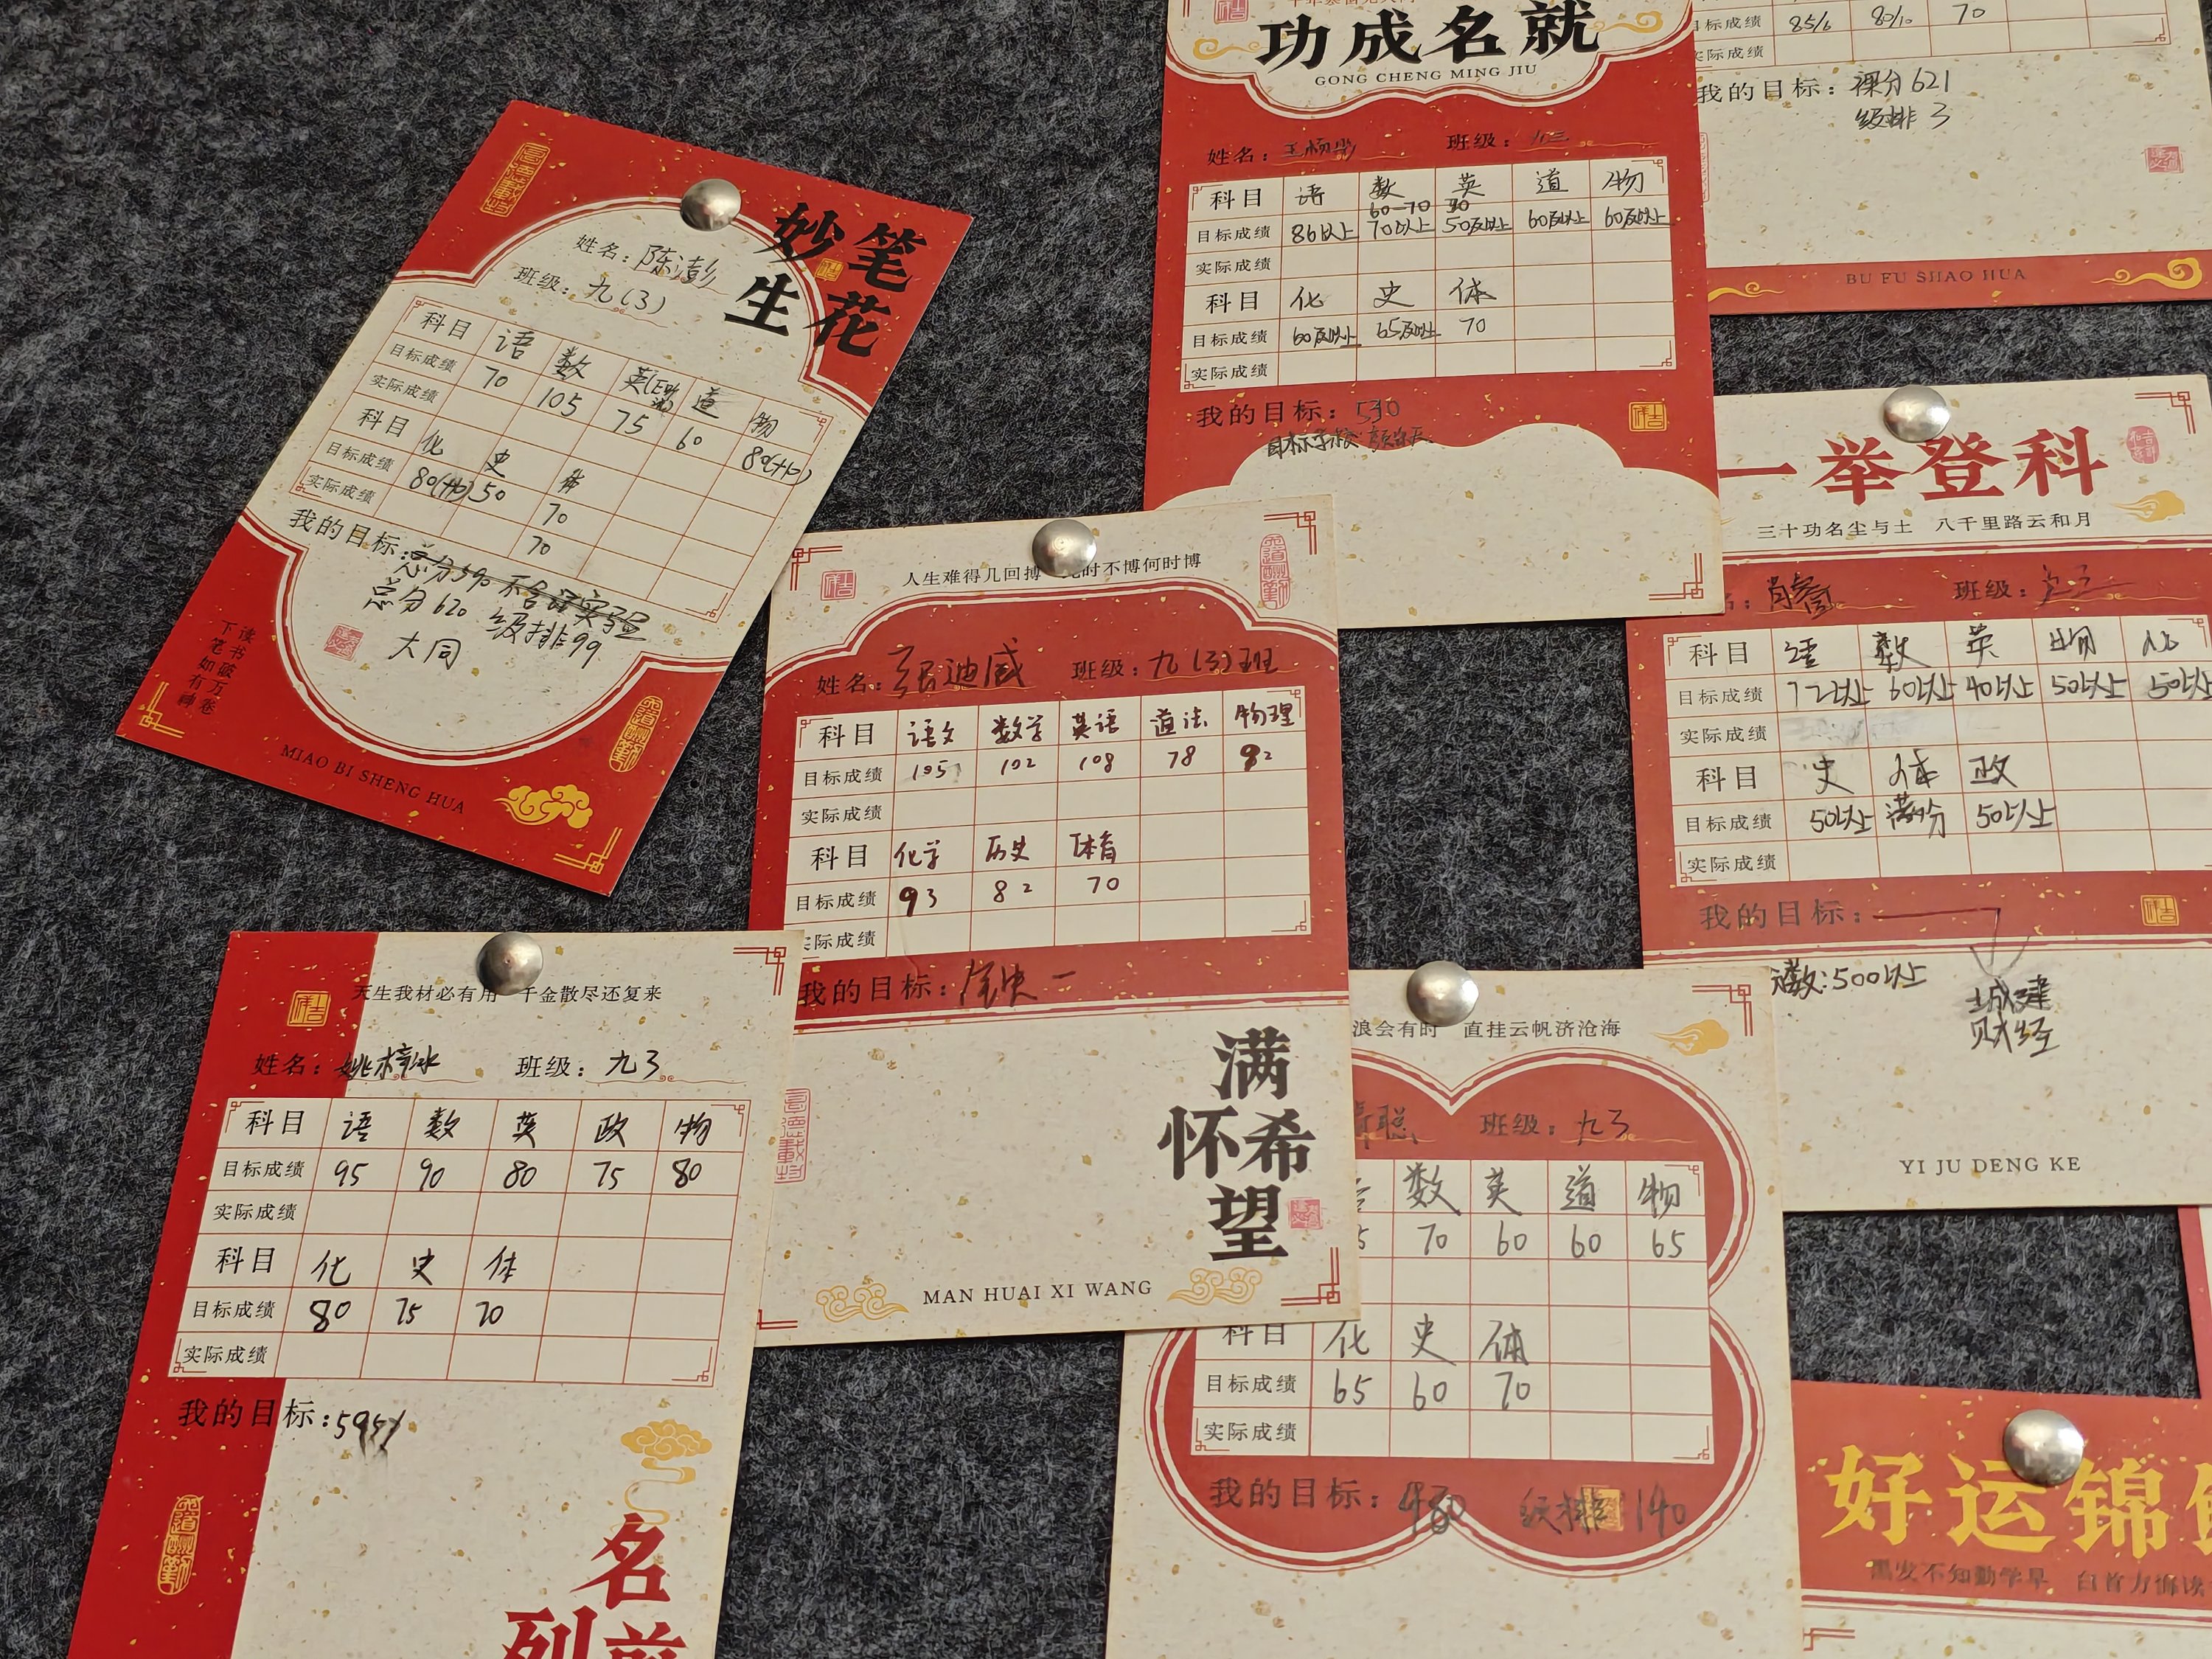 妙笔
生花
姓名：陈澎
班级：九(3)
科目 语 数 英 道 物
目标成绩 70 105 75 60 80(+10)
实际成绩
科目 化 史 体
目标成绩 80(+10) 50 70
实际成绩 70
我的目标：总分590 不含语实验
总分620 级排99
大同
读书破万卷
下笔如有神
MIAO BI SHENG HUA
功成名就
GONG CHENG MING JIU
姓名： 班级：九三
科目 语 数 英 道 物
60-70
目标成绩 86以上 70以上 50及以上 60及以上 60及以上
实际成绩
科目 化 史 体
目标成绩 60及以上 65及以上 70
实际成绩
我的目标：530
目标学校：
目标成绩 85/6 80/10 70
实际成绩
我的目标：裸分621
级排 3
BU FU SHAO HUA
一举登科
三十功名尘与土 八千里路云和月
班级：九三
科目 语 数 英 物 化
目标成绩 72以上 60以上 40以上 50以上 50以上
实际成绩
科目 史 体 政
目标成绩 50以上 满分 50以上
实际成绩
我的目标：
数：500以上
城建
财经
YI JU DENG KE
人生难得几回搏 时不博何时博
姓名：张迪威 班级：九(3)班
科目 语文 数学 英语 道法 物理
目标成绩 105 102 108 78 92
实际成绩
科目 化学 历史 体育
目标成绩 93 82 70
实际成绩
我的目标：
满
怀希
望
MAN HUAI XI WANG
天生我材必有用 千金散尽还复来
姓名：姚梓冰 班级：九3
科目 语 数 英 政 物
目标成绩 95 90 80 75 80
实际成绩
科目 化 史 体
目标成绩 80 75 70
实际成绩
我的目标：595
名
列前
浪会有时 直挂云帆济沧海
聪 班级：九3
数 英 道 物
5 70 60 60 65
科目 化 史 体
目标成绩 65 60 70
实际成绩
我的目标：480 级排 140
好运锦
黑发不知勤学早 白首方悔读